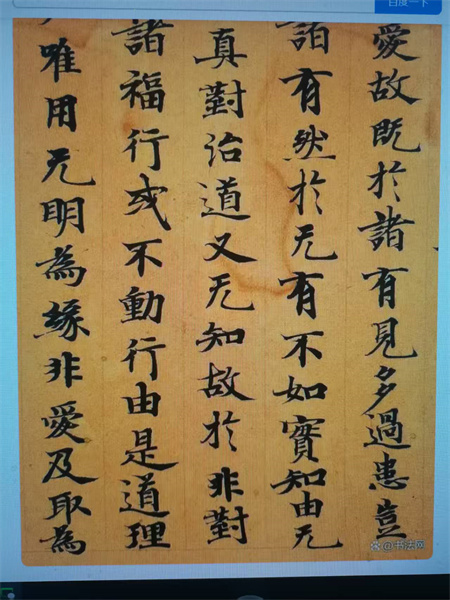 百度一下
愛故既於諸有見多過患豈
諸有然於无有不如實知由无
真對治道又无知故於非對
諸福行或不動行由是道理
唯用无明為緣非愛及取為
@书法网